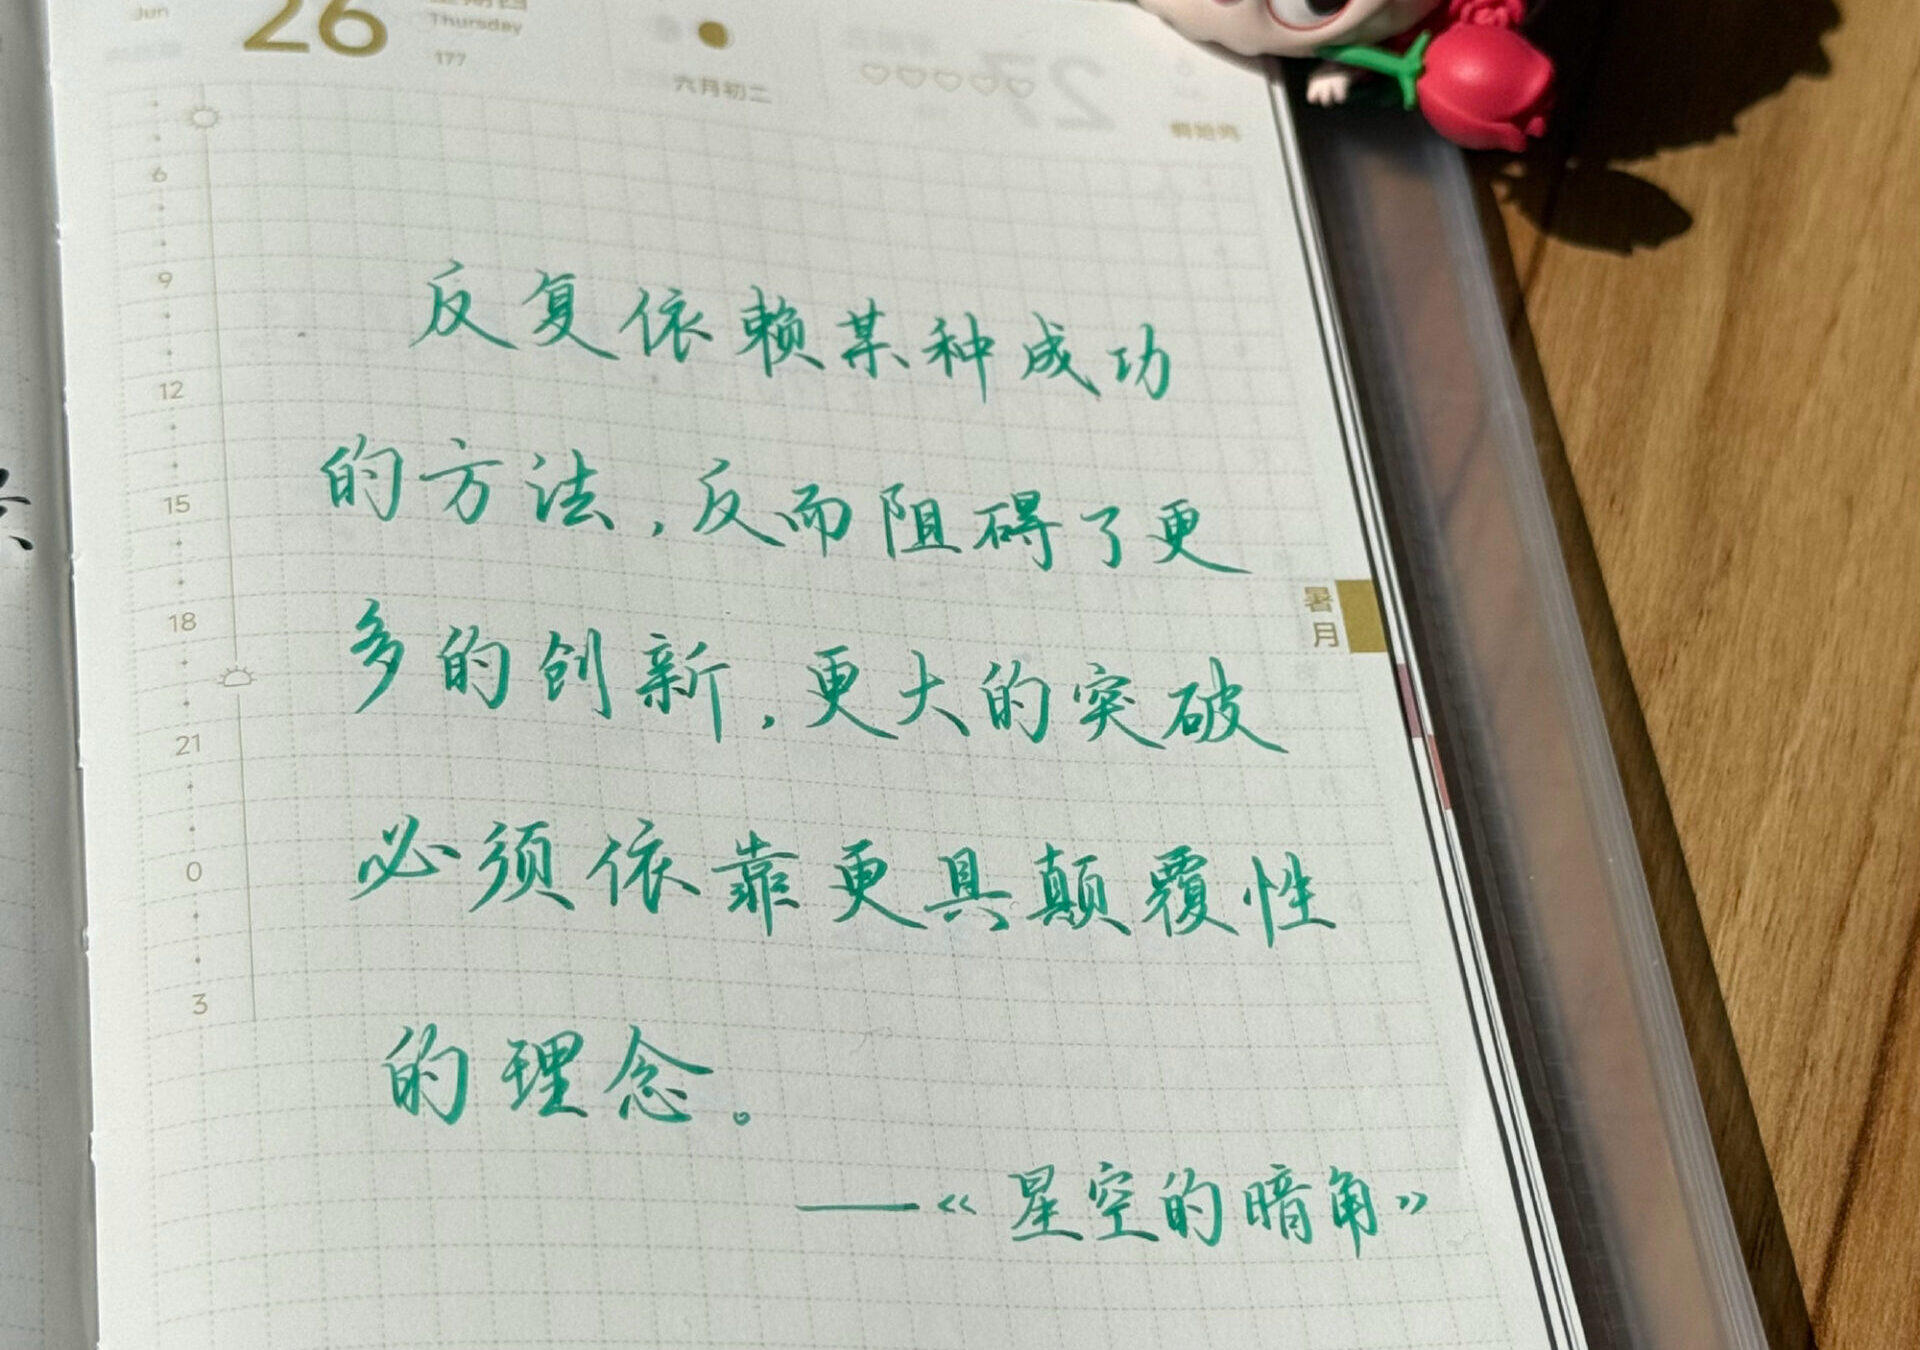 Jun
26
Thursday
177
六月初二
6
9
12
15
18
21
0
3
反复依赖某种成功
的方法，反而阻碍了更
多的创新，更大的突破
必须依靠更具颠覆性
的理念。
——《星空的暗角》
暑月